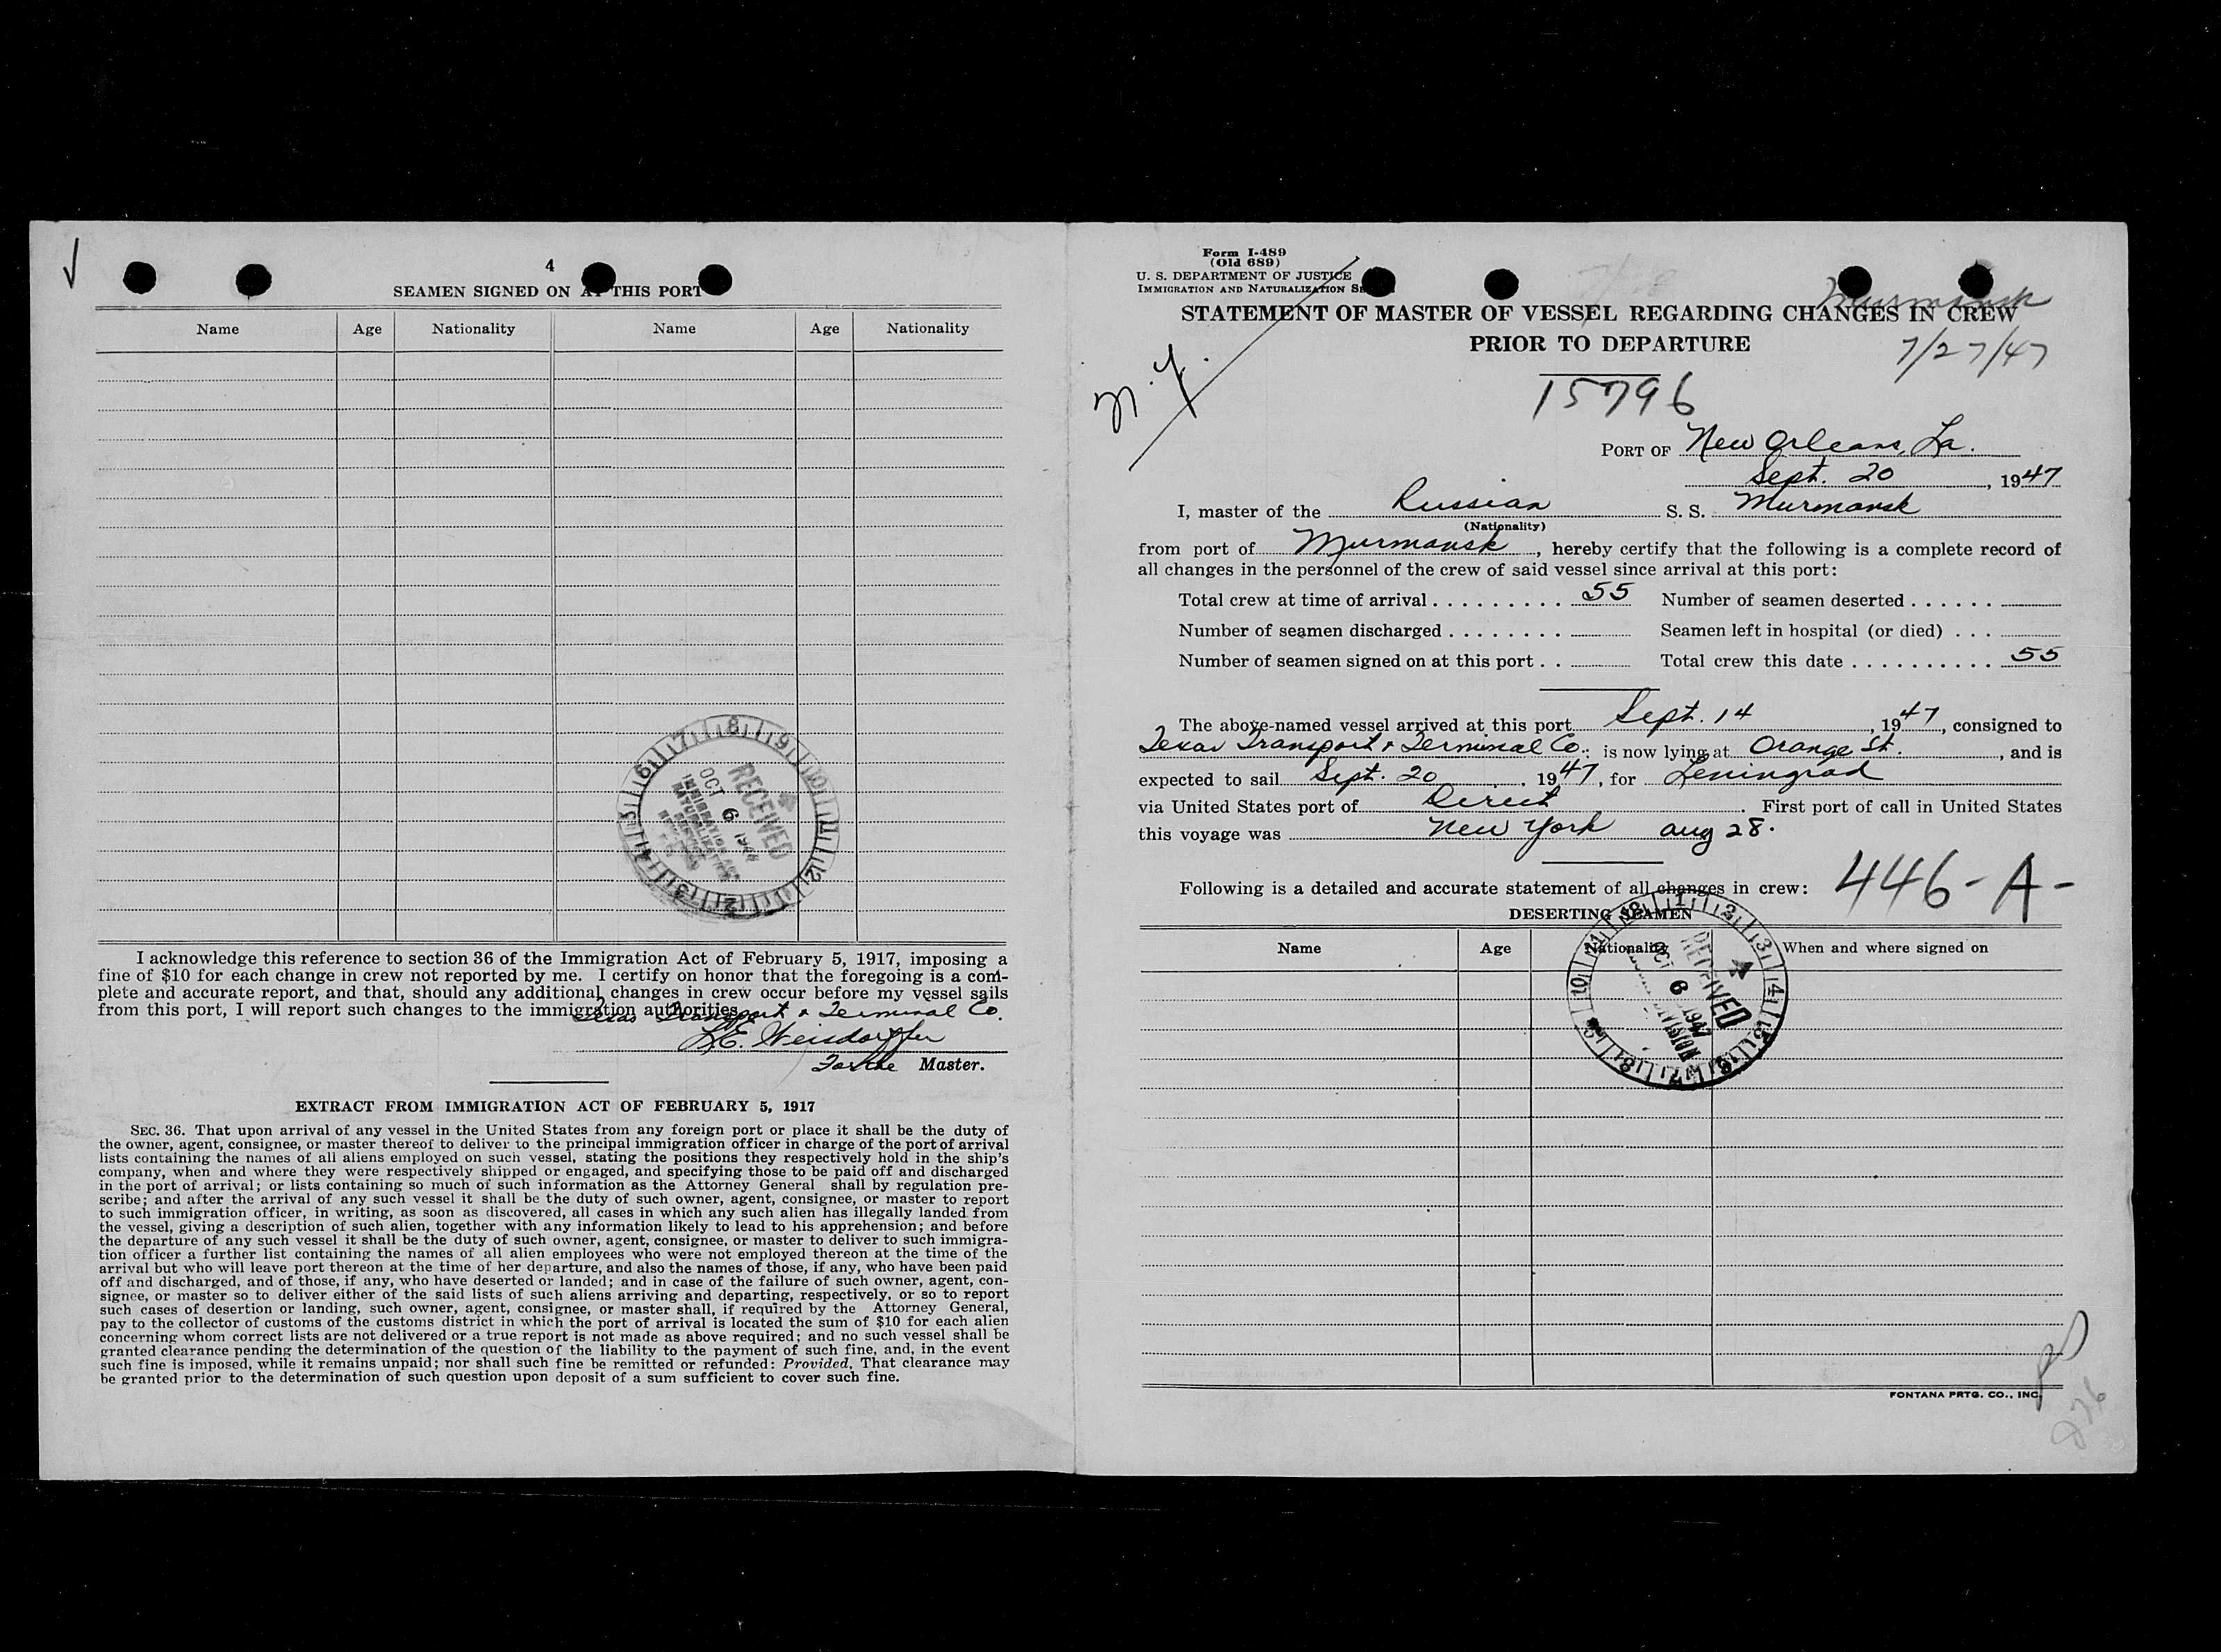 4
SEAMEN SIGNED ON AT THIS PORT
Name Age Nationality Name Age Nationality
RECEIVED
OCT 6
I acknowledge this reference to section 36 of the Immigration Act of February 5, 1917, imposing a
fine of $10 for each change in crew not reported by me. I certify on honor that the foregoing is a com-
plete and accurate report, and that, should any additional changes in crew occur before my vessel sails
from this port, I will report such changes to the immigration authorities.
Texas Transport & Terminal Co.
L.E. Weisdorffer
For the Master.
EXTRACT FROM IMMIGRATION ACT OF FEBRUARY 5, 1917
SEC. 36. That upon arrival of any vessel in the United States from any foreign port or place it shall be the duty of
the owner, agent, consignee, or master thereof to deliver to the principal immigration officer in charge of the port of arrival
lists containing the names of all aliens employed on such vessel, stating the positions they respectively hold in the ship's
company, when and where they were respectively shipped or engaged, and specifying those to be paid off and discharged
in the port of arrival; or lists containing so much of such information as the Attorney General shall by regulation pre-
scribe; and after the arrival of any such vessel it shall be the duty of such owner, agent, consignee, or master to report
to such immigration officer, in writing, as soon as discovered, all cases in which any such alien has illegally landed from
the vessel, giving a description of such alien, together with any information likely to lead to his apprehension; and before
the departure of any such vessel it shall be the duty of such owner, agent, consignee, or master to deliver to such immigra-
tion officer a further list containing the names of all alien employees who were not employed thereon at the time of the
arrival but who will leave port thereon at the time of her departure, and also the names of those, if any, who have been paid
off and discharged, and of those, if any, who have deserted or landed; and in case of the failure of such owner, agent, con-
signee, or master so to deliver either of the said lists of such aliens arriving and departing, respectively, or so to report
such cases of desertion or landing, such owner, agent, consignee, or master shall, if required by the Attorney General,
pay to the collector of customs of the customs district in which the port of arrival is located the sum of $10 for each alien
concerning whom correct lists are not delivered or a true report is not made as above required; and no such vessel shall be
granted clearance pending the determination of the question of the liability to the payment of such fine, and, in the event
such fine is imposed, while it remains unpaid; nor shall such fine be remitted or refunded: Provided, That clearance may
be granted prior to the determination of such question upon deposit of a sum sufficient to cover such fine.
Form I-489
(Old 689)
U. S. DEPARTMENT OF JUSTICE
IMMIGRATION AND NATURALIZATION
Murmansk
STATEMENT OF MASTER OF VESSEL REGARDING CHANGES IN CREW
PRIOR TO DEPARTURE
7/27/47
N.Y.
15796
PORT OF New Orleans, La.
Sept. 20, 1947
I, master of the Russian S. S. Murmansk
(Nationality)
from port of Murmansk, hereby certify that the following is a complete record of
all changes in the personnel of the crew of said vessel since arrival at this port:
Total crew at time of arrival . . . . . . . . . 55 Number of seamen deserted . . . . . .
Number of seamen discharged . . . . . . . . Seamen left in hospital (or died) . . .
Number of seamen signed on at this port . . Total crew this date . . . . . . . . . . 55
The above-named vessel arrived at this port Sept. 14, 1947, consigned to
Texas Transport & Terminal Co.; is now lying at Orange St., and is
expected to sail Sept. 20, 1947, for Leningrad
via United States port of Direct. First port of call in United States
this voyage was New York Aug 28.
Following is a detailed and accurate statement of all changes in crew:
446-A-
DESERTING SEAMEN
Name Age Nationality When and where signed on
RECEIVED
OCT 6 1947
DIVISION
FONTANA PRTG. CO., INC.
226